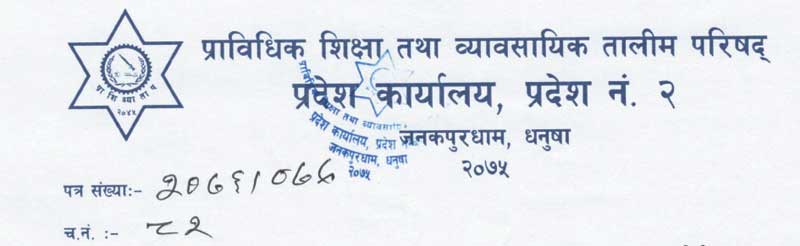 प्राविधिक शिक्षा तथा व्यावसायिक तालीम परिषद्
प्रदेश कार्यालय, प्रदेश नं. २
जनकपुरधाम, धनुषा
२०७५
प्रा शि व्या ता प
२०४५
प्रदेश कार्यालय, प्रदेश
जनकपुरधाम, धनुषा
२०७५
पत्र संख्या:- २०७६।०७७
च.नं. :- ८२